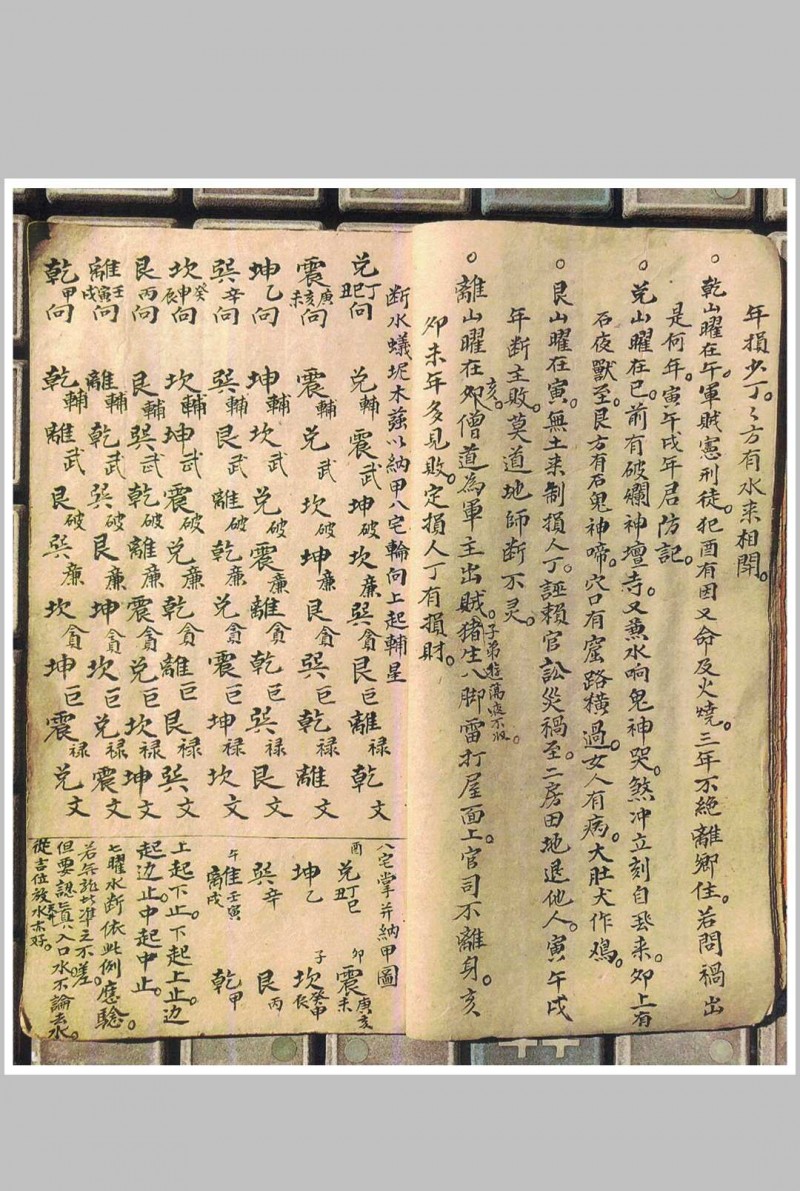 年損少丁。々方有水来相閗。
○乾山曜在午。軍賊憲刑徒。犯酉有因又命及火燒。三年不絶離鄉住。若問禍出
是何年。寅午戌年君防記。
○兑山曜在巳。前有破爛神壇寺。又兼水响鬼神哭。煞冲立刻自來。卯上有
石夜獸至。艮方有石鬼神啼。穴口有窟路横過。女人有病。大肚犬作鴉。
○艮山曜在寅。無土来制損人丁。誣賴官訟災禍至。二房田地退他人。寅午戌
年断主敗。莫道地師断不灵。
○離山曜在卯亥。僧道為軍主出賊。子弟遊蕩不。猪生八脚雷打屋面上。官司不離身。亥
卯未年多見敗。定損人丁有損財。
断水蟻坭木兹以納甲八宅輪向上起輔星
兑丁巳丑向 兑輔 震武 坤破 坎廉 巽貪 艮巨 離禄 乾文
震庚亥未向 震輔 兑武 坎破 坤廉 艮貪 巽巨 乾禄 離文
坤乙向 坤輔 坎武 兑破 震廉 離貪 乾巨 巽禄 艮文
巽辛向 巽輔 艮武 離破 乾廉 兑貪 震巨 坤禄 坎文
坎癸申辰向 坎輔 坤武 震破 兑廉 乾貪 離巨 艮禄 巽文
艮丙向 艮輔 巽武 乾破 離廉 震貪 兑巨 坎禄 坤文
離壬寅戌向 離輔 乾武 巽破 艮廉 坤貪 坎巨 兑禄 震文
乾甲向 乾輔 離武 艮破 巽廉 坎貪 坤巨 震禄 兑文
八宅掌并納甲圖
酉 兑丁巳丑 卯 震庚亥未
坤乙 子 坎癸申辰
巽辛 艮丙
午 離壬寅戌 乾甲
上起下止。下起上止边
起边止。中起中止。
七曜水断依此例應驗。
若无龍此準主不差。
但要認真入口水不論去水。
從吉位放水亦好。